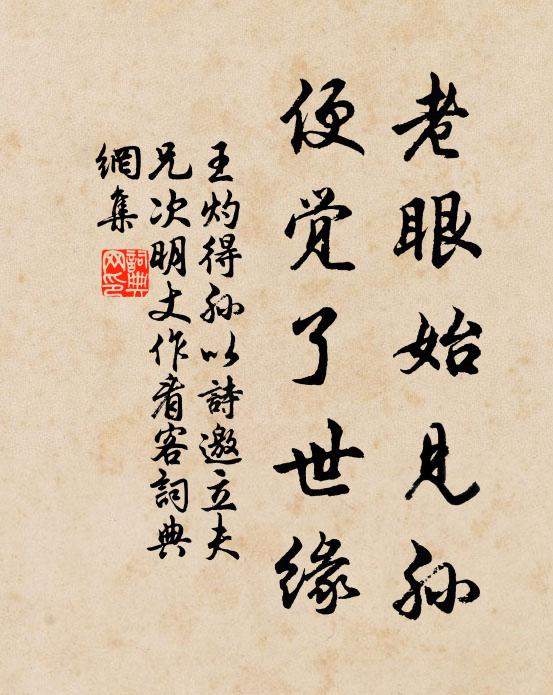 老眼始见孙
便觉了世缘
王灼得孙以詩邀立夫
兄次明丈作看客詞典
網集
詞典網印